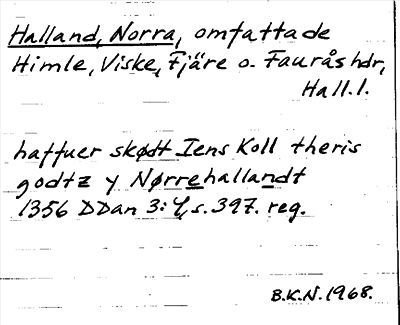 Halland, Norra, omfattade
Himle, Viske, Fjäre o. Faurås hdr,
Hall.l.
haffuer skødt Iens Koll theris
godtz y Nørrehallandt
1356 DDan 3:4, s. 397. reg.
B.K.N. 1968.